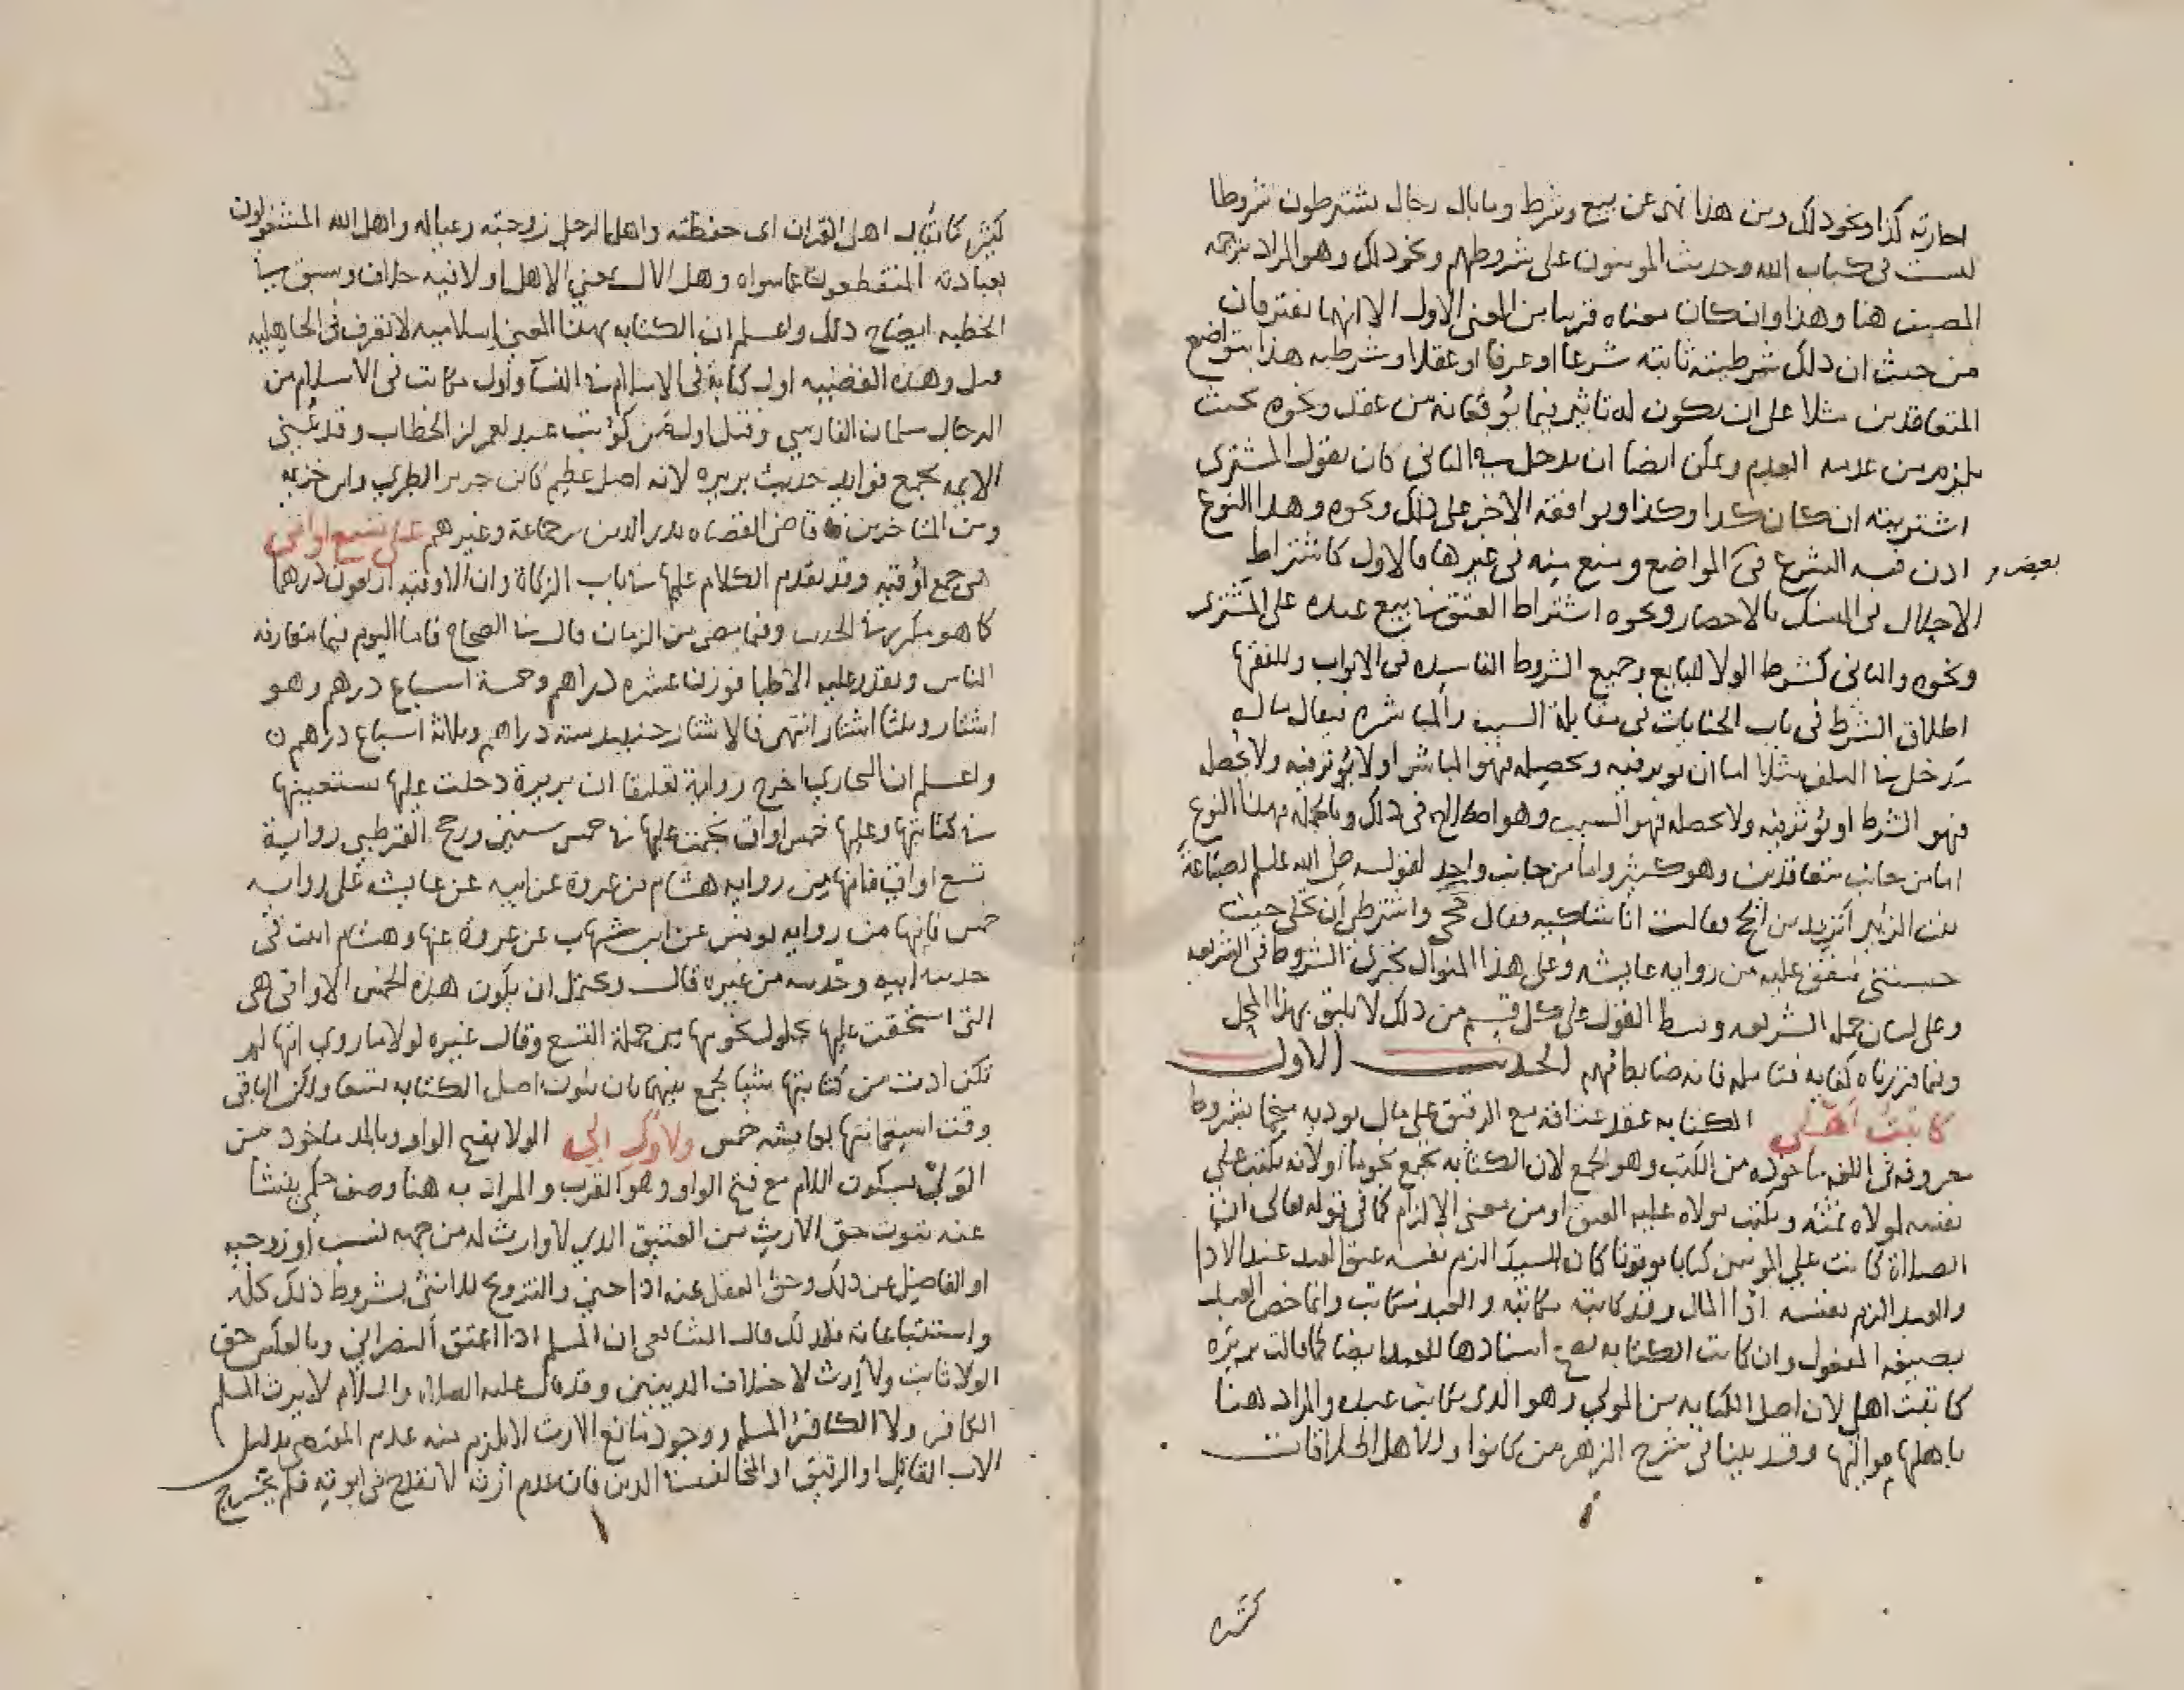 اجارته كذا ونحو ذلك ومن هذا نهى عن بيع وشرط وما بال رجال يشترطون شروطا
ليست في كتاب الله وحديث المومنون على شروطهم ونحو ذلك وهو المراد بترجمة
المصنف هنا وهذا وان كان معناه قريبا من المعنى الاول الا انهما يفترقان
من حيث ان ذلك شرطيته ثابته شرعا او عرفا او عقلا وشرطيه هذا بتواضع
المتعاقدين مثلا على ان يكون له تاثير فيما يوقعانه من عقد ونحوه بحيث
يلزم من عدمه العدم ويمكن ايضا ان يدخل فيه الثاني كان يقول المشترى
اشتريته ان كان كذا وكذا ويوافقه الاخر على ذلك ونحوه وهذا النوع
اذن فيه الشرع في المواضع ومنع منه في غيرها فالاول كاشتراط
بعض
الاحلال في النسك بالاحصار ونحوه اشتراط العتق في بيع عبده على المشترى
ونحوه والثاني كشرط الولا للبايع وجميع الشروط الفاسده في الابواب وللفقها
اطلاق الشرط في باب الجنايات في مقابلة السبب والمباشره فيقال ماله
مدخل في التلف مثلا اما ان يوثر فيه ويحصله فهو المباشر او لا يوثر فيه ولا يحصله
فهو الشرط او يوثر فيه ولا يحصله فهو السبب وهو اصطلاح في ذلك وبالجمله فهذا النوع
اما من جانب متعاقدين وهو كثير واما من جانب واحد لقوله صلى الله عليه لضباعة
بنت الزبير اتريدين الحج فقالت انا شاكيه فقال حجي واشترطي ان محلي حيث
حبستني متفق عليه من روايه عايشه وعلى هذا المنوال تجري الشروط في الشريعه
وعلى لسان حملة الشريعه وبسط القول على كل قسم من ذلك لا يليق بهذا المحل
وفيما قررناه كفايه فتامله فانه ضابط مهم الحديث الاول
كاتبت اهلى الكتابه عقد عتاقه مع الرقيق على مال يوديه منجما بشروط
معروفه في الفقه ماخوذه من الكتب وهو الجمع لان الكتابه تجمع نجوما او لانه يكتب على
نفسه لمولاه ثمنه ويكتب مولاه عليه العتق او من معنى الالزام كما في قوله تعالى ان
الصلاة كانت على المومنين كتابا موقوتا كان السيد الزم نفسه عتق العبد عند الادا
والعبد الزم نفسه ادا المال وقد كاتبته مكاتبه والعبد مكاتب وانما خص العبد
بصيغه المفعول وان كانت الكتابه يصح اسنادها للعبد ايضا كما قالت بريره
كاتبت اهلي لان اصل الكتابه من المولى وهو الذى يكاتب عبده والمراد هنا
باهلها مواليها وقد بينا في شرح الزهر من كانوا وللاهل اطلاقات
كثيره
كثيره كما يقال اهل القران اى حفظته واهل الرجل زوجته وعياله واهل الله المشتغلون
بعبادته المنقطعون عما سواه وهل الال بمعنى الاهل او لا فيه خلاف وسبق في
الخطبه ايضاح ذلك واعلم ان الكتابه بهذا المعنى اسلاميه لا تعرف في الجاهليه
قيل وهذه القضيه اول كتابة في الاسلام في النسا واول مكاتب في الاسلام من
الرجال سلمان الفارسي وقيل اول من كوتب عبد لعمر بن الخطاب وقد عني
الايمه بجمع فوايد حديث بريره لانه اصل عظيم كابن جرير الطبري وابن خزيمه
ومن المتاخرين قاضى القضاه بدر الدين بن جماعة وغيرهم على تسع اواقى
هي جمع اوقيه وقد تقدم الكلام عليها في باب الزكاة وان الاوقيه اربعون درهما
كما هو مكرر في الحديث وفيما مضى من الزمان قال في الصحاح فاما اليوم فيما يتعارفه
الناس ويقدر عليه الاطبا فوزن عشره دراهم وخمسة اسباع درهم وهو
استار وثلثا استار انتهى فالاستار حينيذ سته دراهم وثلاثة اسباع دراهم
واعلم ان البخاري اخرج رواية تعليقا ان بريرة دخلت عليها تستعينها
في كتابتها وعليها خمس اواق نجمت عليها في خمس سنين ورجح القرطبي رواية
تسع اواق فانها من روايه هشام بن عروة عن ابيه عن عايشه على روايه
خمس فانها من روايه يونس عن ابن شهاب عن عروة عنها وهشام اثبت في
حديث ابيه وحديثه من غيره قال ويحتمل ان يكون هذه الخمس الاواقى هى
التي استحقت عليها بحلول نجومها من جملة التسع وقال غيره لولا ما روي انها لم
تكن ادت من كتابتها شيا لجمع بينهما بان يكون اصل الكتابه تسعا ولكن الباقى
وقت استعانتها بعايشه خمس ولاوك لي الولا بفتح الواو وبالمد ماخوذ من
الولي بسكون اللام مع فتح الواو وهو القرب والمراد به هنا وصف حكمي ينشا
عنه ثبوت حق الارث من العتيق الذي لا وارث له من جهه نسب او زوجيه
او الفاضل عن ذلك وحق العقل عنه اذا جنى والتزويج للانثى بشروط ذلك كله
واستتباعاته فلذلك قال الشافعى ان المسلم اذا اعتق النصراني وبالعكس حق
الولا ثابت ولا ارث لاختلاف الدينين وقد قال عليه الصلاه والسلام لا يرث المسلم
الكافر ولا الكافر المسلم ووجود مانع الارث لا يلزم منه عدم المقتضى بدليل
الاب القاتل او الرقيق او المخالف في الدين فان عدم ارثه لا يقدح في ابوته فلم يخرج